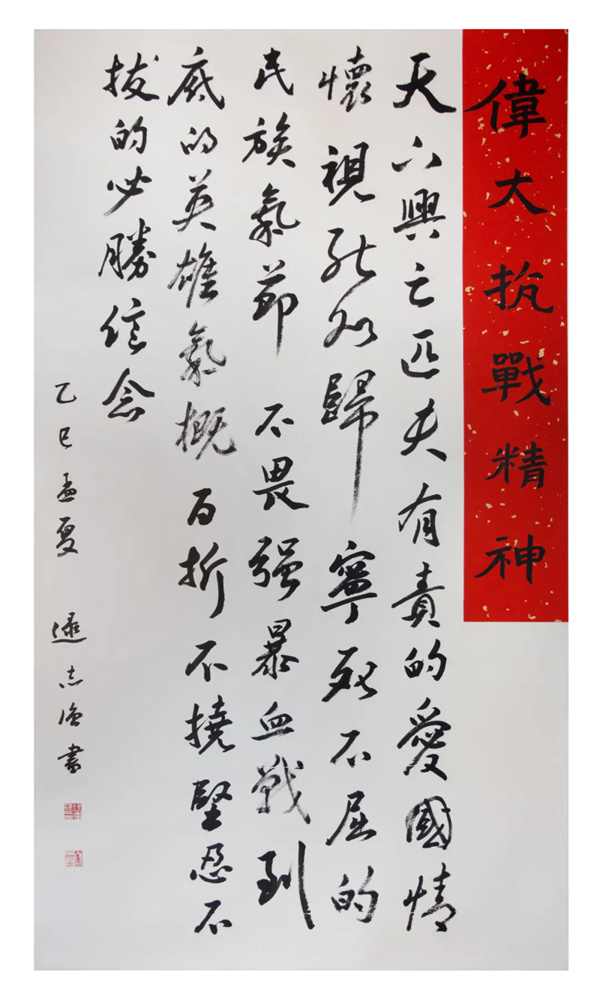 偉大抗戰精神
天下興亡匹夫有責的愛國情
懷視死如歸寧死不屈的
民族氣節不畏强暴血戰到
底的英雄氣概百折不撓堅忍不
拔的必勝信念
乙巳孟夏 逯志書